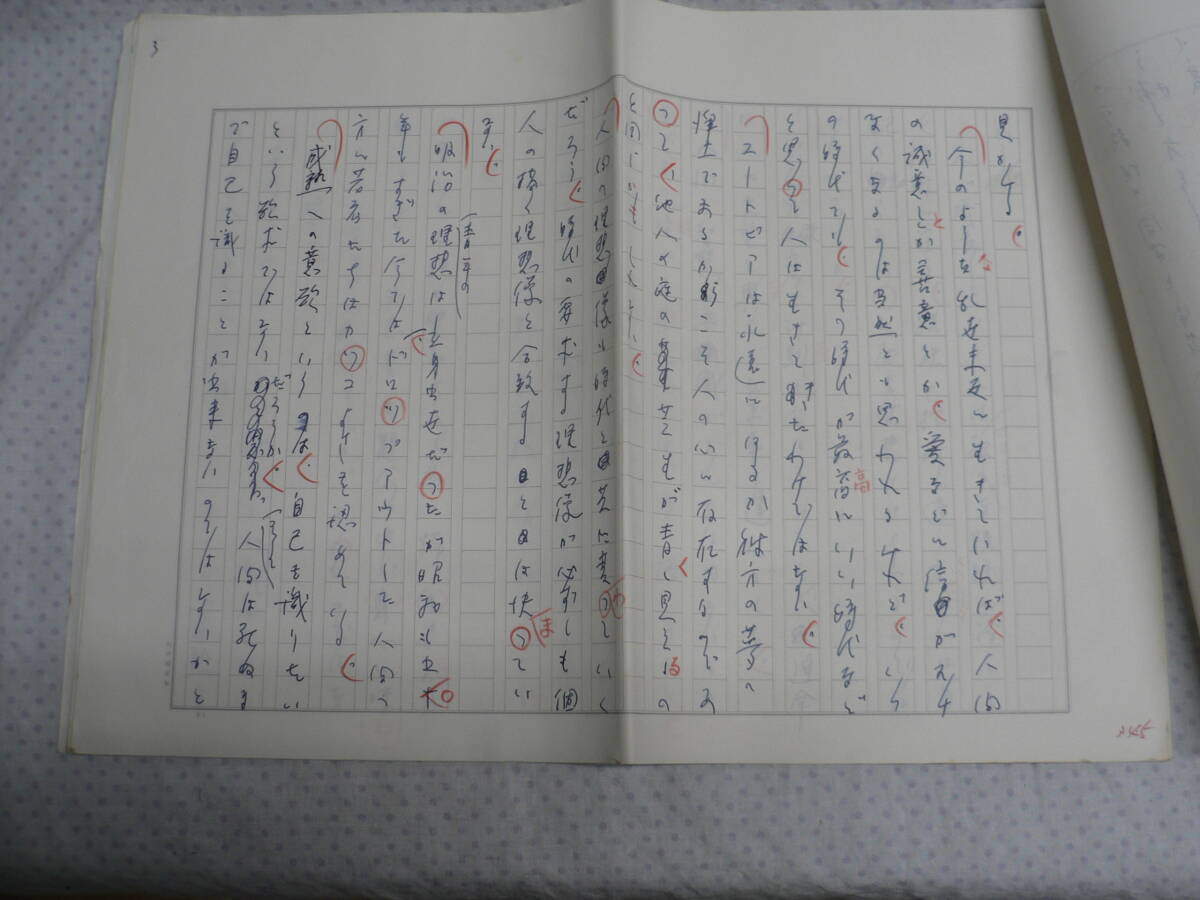 3
見かける。
今のような乱世末世に生きていれば、人間
の誠意とか善意とか、愛などに信がおけ
なくなるのは当然とも思われるけれど、いつ
の時代でも、その時代が最高にいい時代など
と思って人は生きて来たわけではない。
ユートピアは永遠にはるか彼方の夢
であるからこそ人の心に存在するのであ
って、他人の庭の芝生が青く見えるの
と同じかもしれない。
人間の理想像も時代と共に変っていく
だろう。時代の要求する理想像が必ずしも個
人の描く理想像と合致するとは決っていな
い。
明治の青年の理想は、立身出世だったが昭和も五十
年もすぎた今では、ドロップアウトした人間の
方に若者たちはカッコよさを認めている。
成熟への意欲というのは、自己を識りたい
という欲求ではないだろうか。人間は死ぬま
で自己を識ることが出来ないのではないかと
245